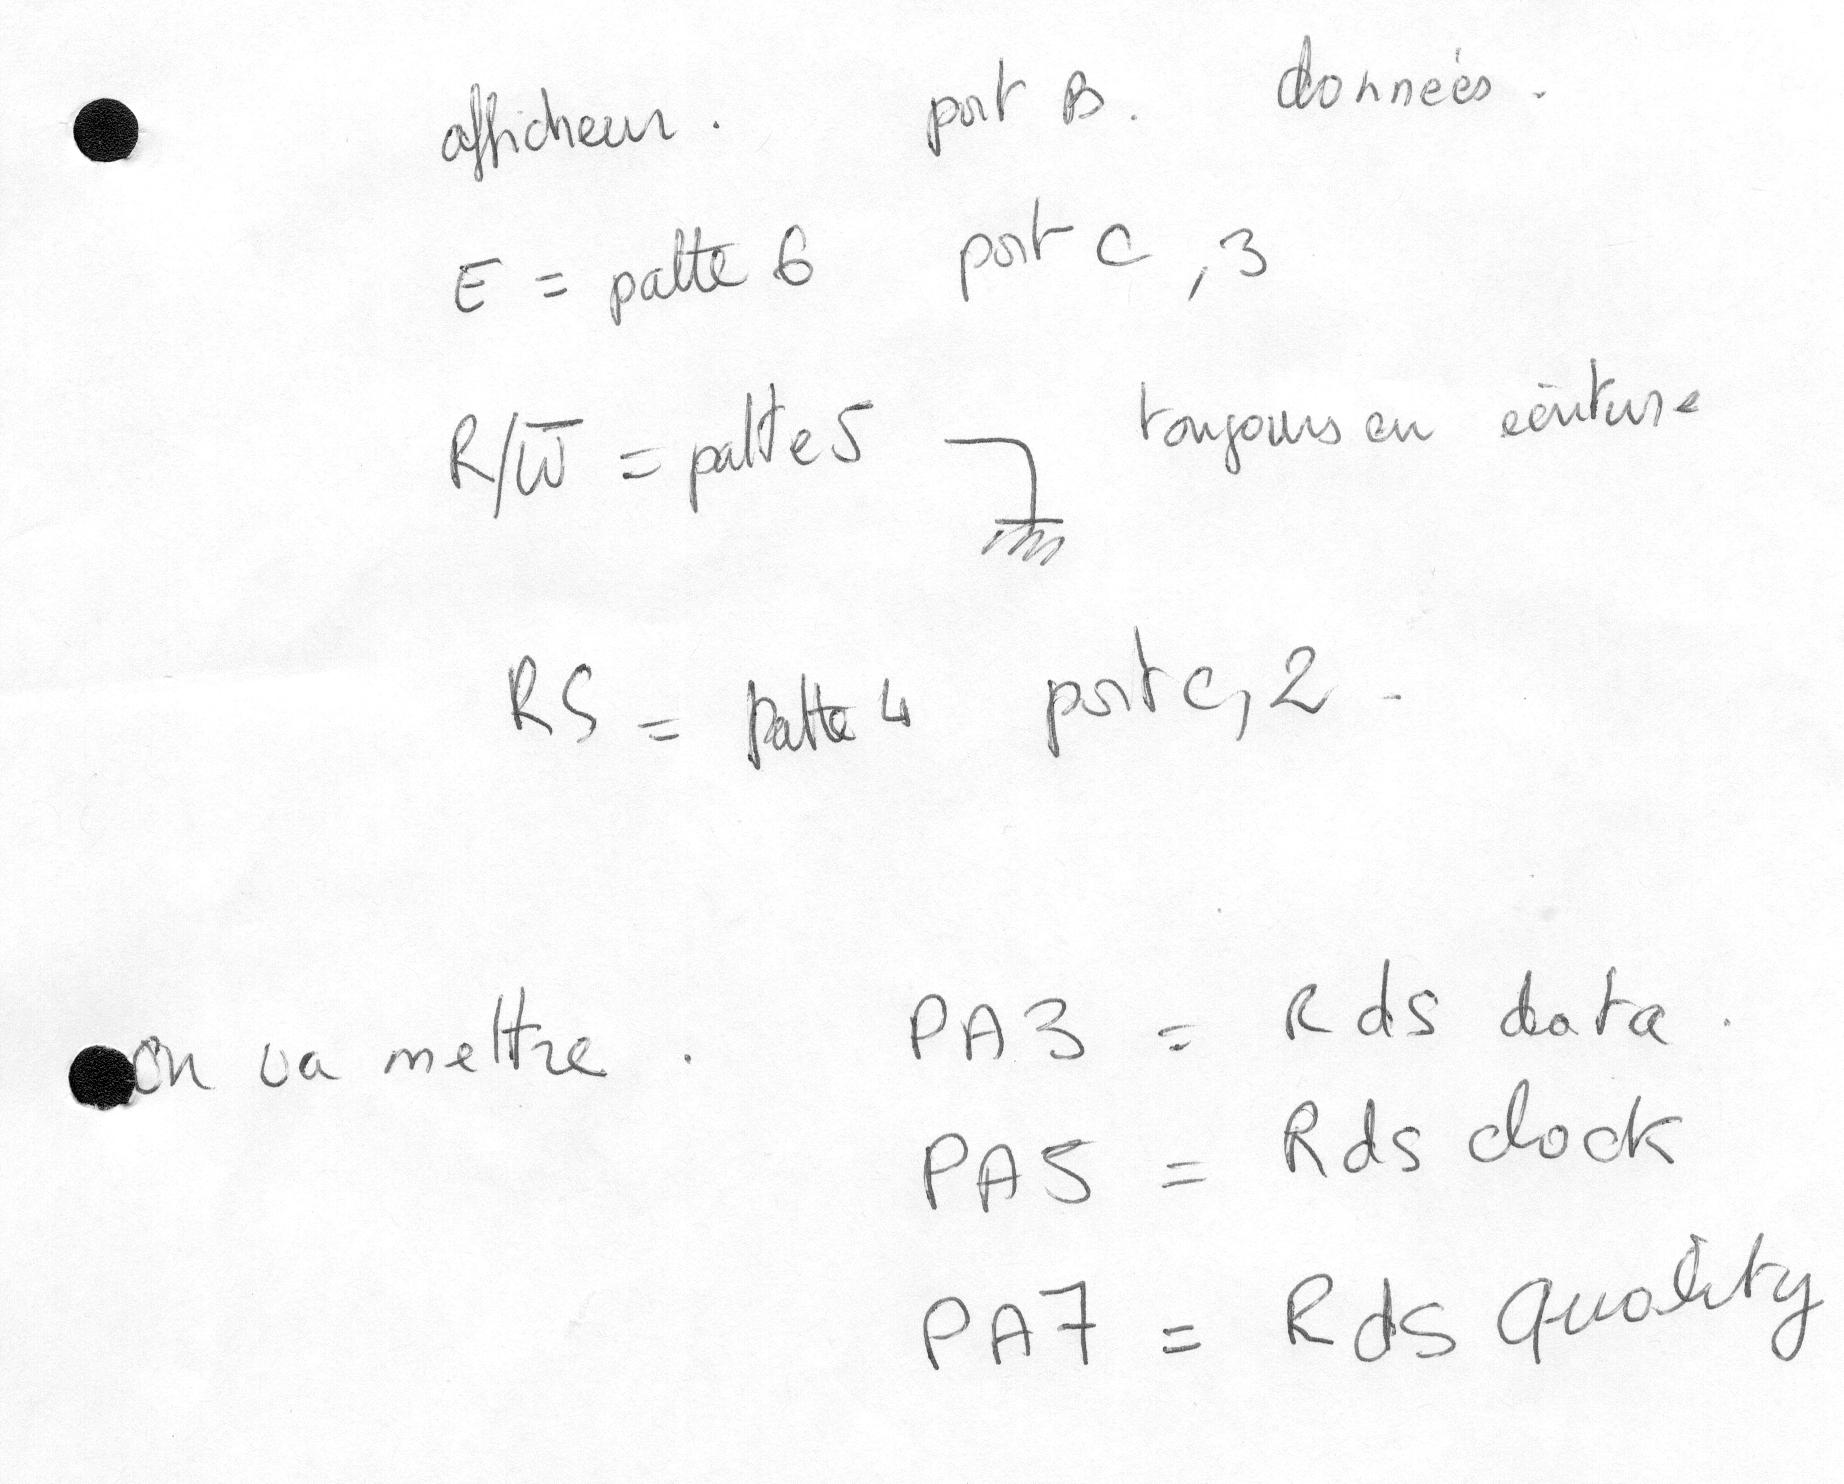 afficheur. port B. données.
E = patte 6 port C, 3
R/W̅ = patte 5 toujours en écriture
RS = patte 4 port C, 2 -
on va mettre. PA3 = Rds data.
PA5 = Rds clock
PA7 = Rds quality